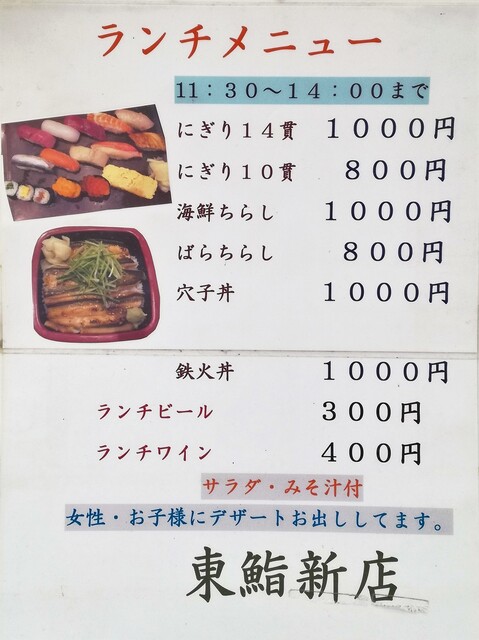 ランチメニュー
11:30～14:00まで
にぎり14貫 1000円
にぎり10貫 800円
海鮮ちらし 1000円
ばらちらし 800円
穴子丼 1000円
鉄火丼 1000円
ランチビール 300円
ランチワイン 400円
サラダ・みそ汁付
女性・お子様にデザートお出ししてます。
東鮨新店